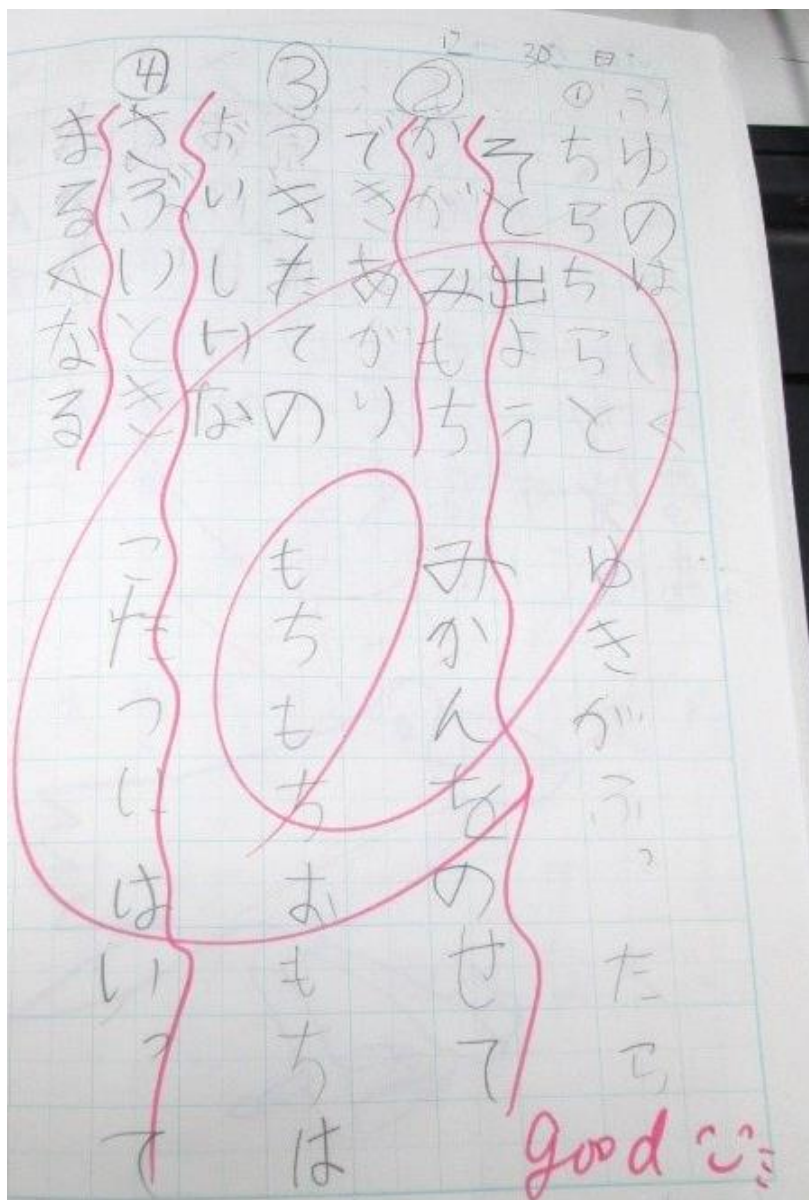 12 30 日
ふゆのはいく
① ちらちらと ゆきがふったら
そと出よう
② かがみもち みかんをのせて
できあがり
③ つきたての もちもちおもちは
おいしいな
④ さぶいとき こたつにはいって
まるくなる
good